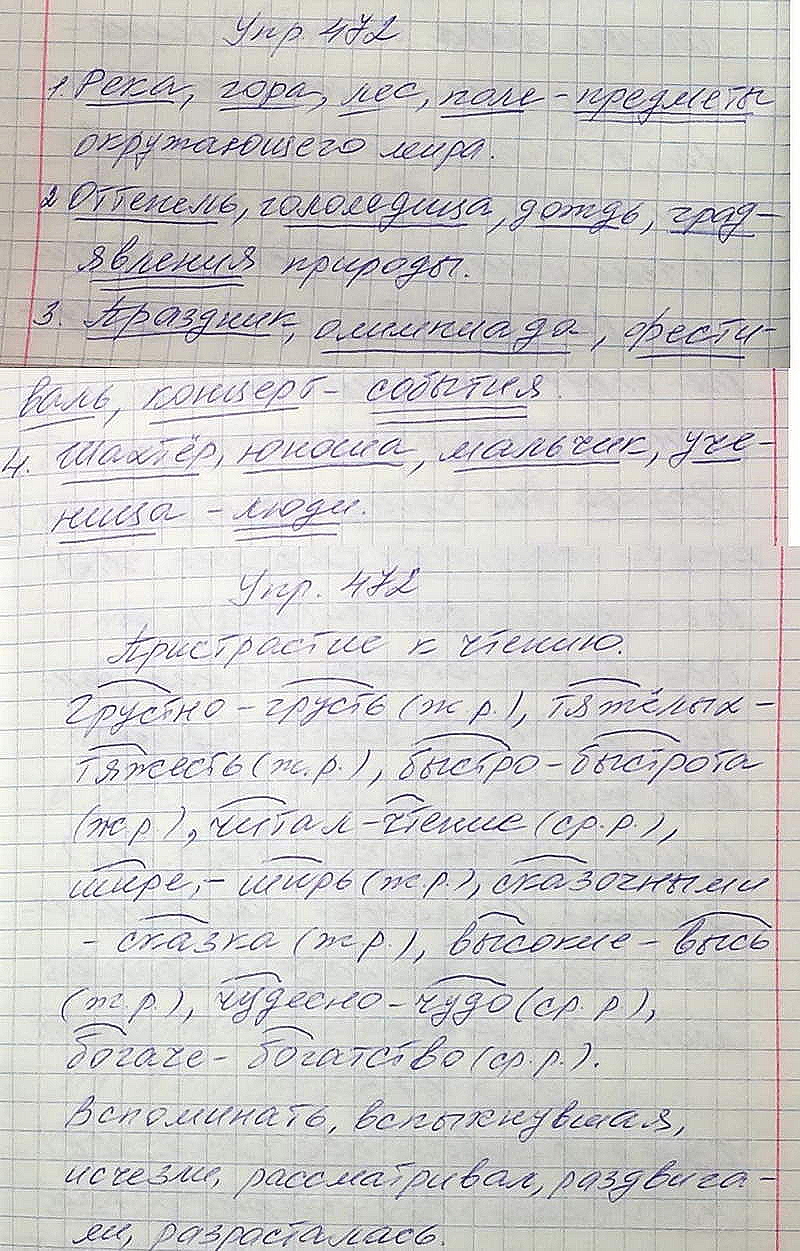 Упр 472
1. Река, гора, лес, поле - предметы
окружающего мира.
2 Оттепель, гололедица, дождь, град -
явления природы.
3. Праздник, олимпиада, фести-
валь, концерт - события.
4. Шахтёр, юноша, мальчик, уче-
ница - люди.
Упр. 472
Пристрастие к чтению.
Грустно - грусть (ж.р.), тяжёлых -
тяжесть (ж.р.), быстро - быстрота
(ж.р.), читал - чтение (ср.р.),
шире, - ширь (ж.р.), сказочными
- сказка (ж.р.), высокие - высь
(ж.р.), чудесно - чудо (ср.р),
богаче - богатство (ср.р.).
Вспоминать, вспыхнувшая,
исчезли, рассматривал, раздвига-
ли, разрасталась.